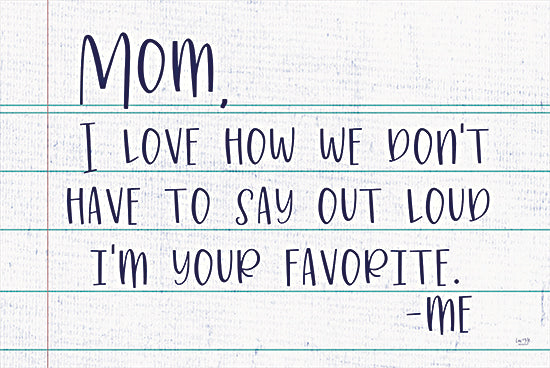 Mom,
I LOVE HOW WE DON'T
HAVE TO SAY OUT LOUD
I'M YOUR FAVORITE.
-ME